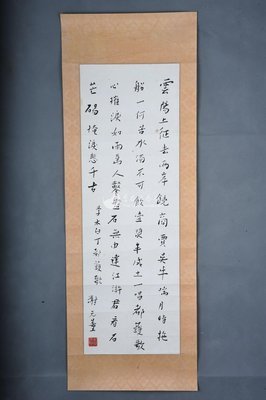 雲陽上征去兩岸饒商賈吳牛喘月時拖
船一何苦水濁不可飲壺漿半成土一唱都護歌
心摧淚如雨萬人鑿盤石無由達江滸君看石
芒碭掩淚悲千古
李太白丁都護歌